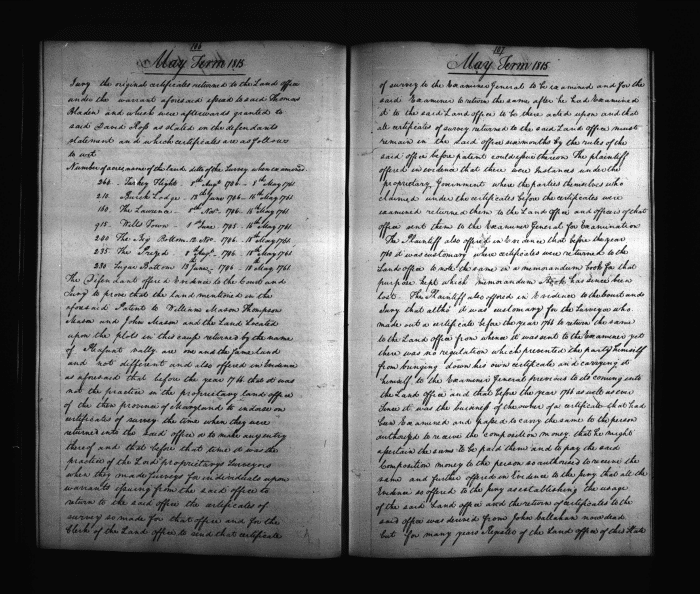 186
May Term 1815
Jury the original certificates returned to the Land office
under the warrant aforesaid issued to said Thomas
Bladen and which were afterwards granted to
said David Ross as stated in the defendants
statement and which certificates are as follows
to wit
Number of acres name of the land date of the Survey when examined
260 - Turkey Flight - 5th Augt 1746 - 5th May 1761
210 Buick Lodge - 12th June 1746 - 15th May 1761
160 The Lawrence - 5th Nov. 1746 - 15th May 1761
915 - Wills Town - 1st June 1745 - 15th May 1761
240 The Big Bottom 12 Nov. 1746 - 15th May 1761
235 The 1746 - 15th May 1761
230 Sugar Bottom 13 June 1746 - 15 May 1761
The Defendant offered Evidence to the Court and
Jury to prove that the land mentioned in the
aforesaid Patent to William Mason Thompson
Mason and John Mason and the Land Located
upon the plots in this cause returned by the name
of Pleasant vally are one and the same land
and not different and also offered in Evidence
as aforesaid that before the year 1764 that it was
not the practice in the proprietary land office
of the then province of Maryland to endorse on
certificates of survey the time when they were
returned into the said office or to make any entry
thereof and that before that time it was the
practice of the Lord proprietarys Surveyors
when they made Surveys for individuals upon
warrants issuing from the said office to
return to the said office the certificates of
survey so made for that office and for the
Clerk of the Land office to send that certificate
187
May Term 1815
of survey to the Examiner General to be examined and for the
said Examiner to return the same after he had Examined
it to the said Land office to be there acted upon and that
all certificates of survey returned to the said Land office must
remain in the said office six months by the rules of the
said office before patent could issue thereon The plaintiff
offered in evidence that there were Instances under the
proprietary Government where the parties themselves who
claimed under the certificates before the certificates were
examined returned them to the Land office and officers of that
office sent them to the Examiner General for Examination
The Plaintiff also offered in Evidence that before the year
1760 it was customary when certificates were returned to the
Land office to note the same in a memorandum book for that
purpose kept which memorandum Book has since been
lost. The Plaintiff also offered in Evidence to the court and
Jury that altho' it was customary for the Surveyor who
made out a certificate before the year 1764 to return the same
to the Land office from whence it was sent to the Examiner yet
there was no regulation which prevented the party himself
from bringing down his own certificate and carrying it
himself to the Examiner General previous to its coming into
the Land office and that before the year 1764 as well as ever
since it was the business of the owner of a certificate that had
been Examined and passed to carry the same to the person
authorized to receive the composition money that he might
ascertain the sum to be paid them and to pay the said
Composition money to the person so authorised to receive the
same and further offered in Evidence to the jury that all the
Evidence so offered to the Jury as establishing the usage
of the said Land office and the return of certificates to the
said office was derived from John Callahan now dead
but for many years Register of the Land office of this State